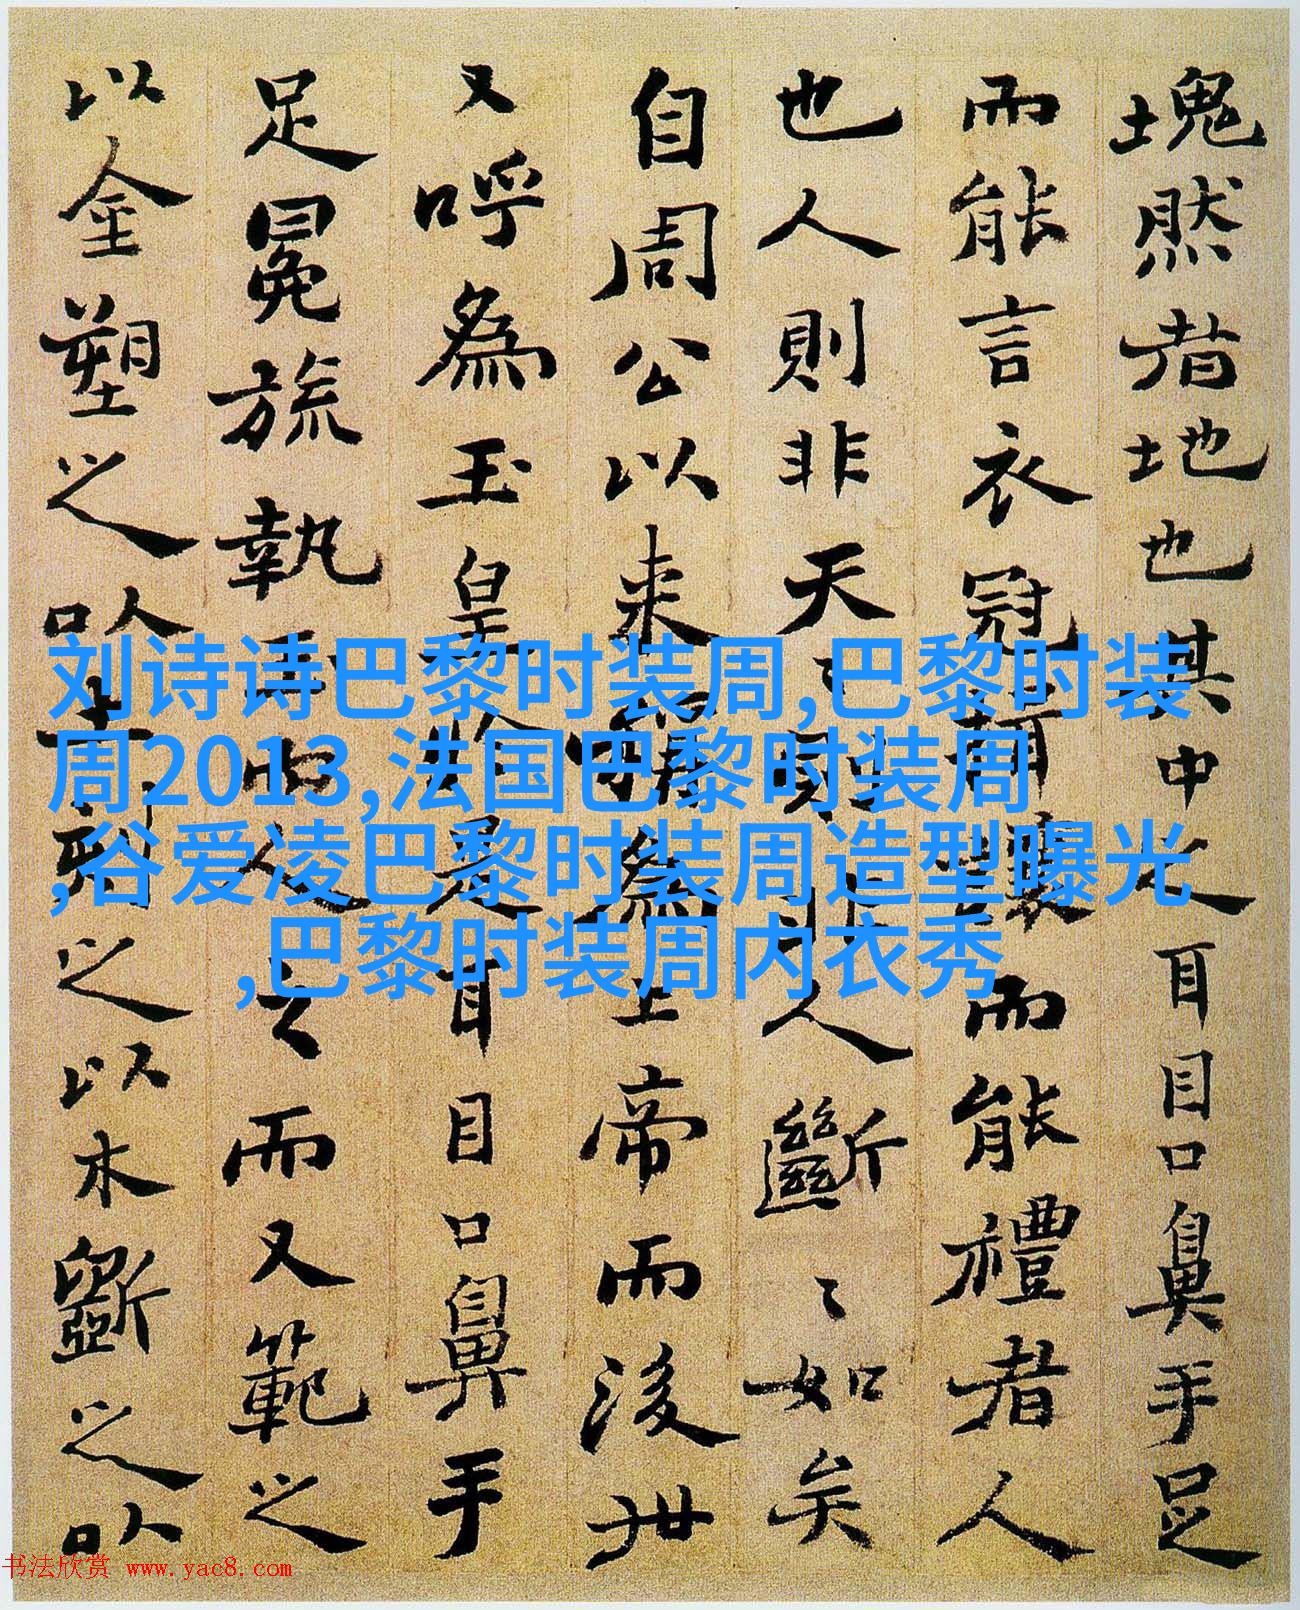 塊然者地也其中耳目口鼻手足
而能言衣冠裳而能禮者人
也人則非天〻則非人斷〻如矣
自周公以来為上帝而後世
又呼為玉皇於是耳目口鼻手
足冕旒執玉而人之而又範之
以金塑之以土之以木斲之以
刘诗诗巴黎时装周,巴黎时装
周2013,法国巴黎时装周
,谷爱凌巴黎时装周造型曝光
,巴黎时装周内衣秀
书法欣赏 www.yac8.com